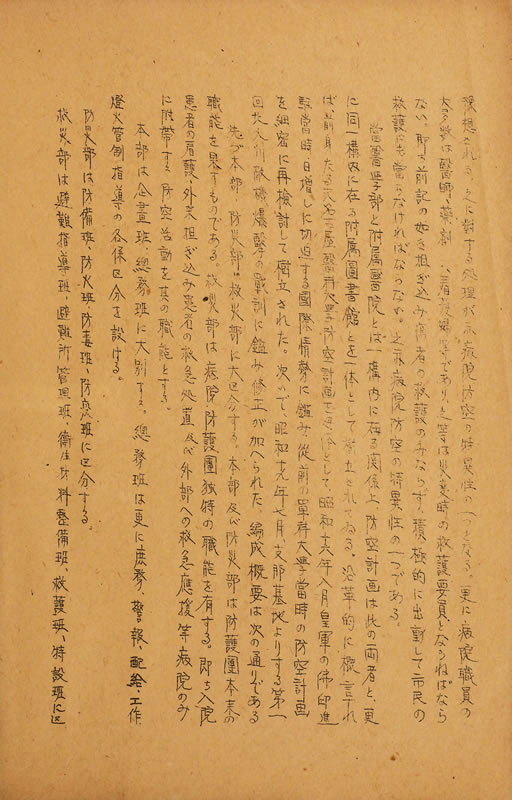 豫想される。之に對する処理が亦病院防空の特異性の一つとなる。更に病院職員の
大多数は醫師、藥剤　　　、看護婦等であり之等は災変時の救護要員とならねばなら
ない。即ち前記の如き担ぎ込み傷者の救護のみならず、積極的に出動して市民の
救護にも當らなければならない。之亦病院防空の特異性の一つである。
當醫学部と附属醫院とは一構内に在る関係上防空計画は此の両者と、更
に同一構内に在る附属圖書館とを一体として樹立されてゐる。沿革的に概言すれ
ば、前身たる名古屋醫科大學防空計画を母体として、昭和十六年八月皇軍の佛印進
駐當時日増しに切迫する國際情勢に鑑み、從前の單科大學當時の防空計画
を細密に再檢討して樹立された。次いで、昭和十九年七月、支那基地よりする第一
回北九州敵機爆撃の戰訓に鑑み修正が加へられた。編成概要は次の通りである
先づ本部、防災部、救災部に大区分する。本部及び防災部は防護團本来の
職能を果すものである。救災部は病院防護團独特の職能を有する。即ち入院
患者の看護、外来担ぎ込み患者の救急処置及び外部への救急應援等病院のみ
に附帶する防空活動を其の職能とする。
本部は企畫班、總務班に大別する。總務班は更に庶務、警報、配給、工作、
燈火管制指導の各係区分を設ける。
防災部は防備班、防火班、防毒班、防疫班に区分する。
救災部は避難指導班、避難所管理班、衛生材料整備班、救護班、特設班に区